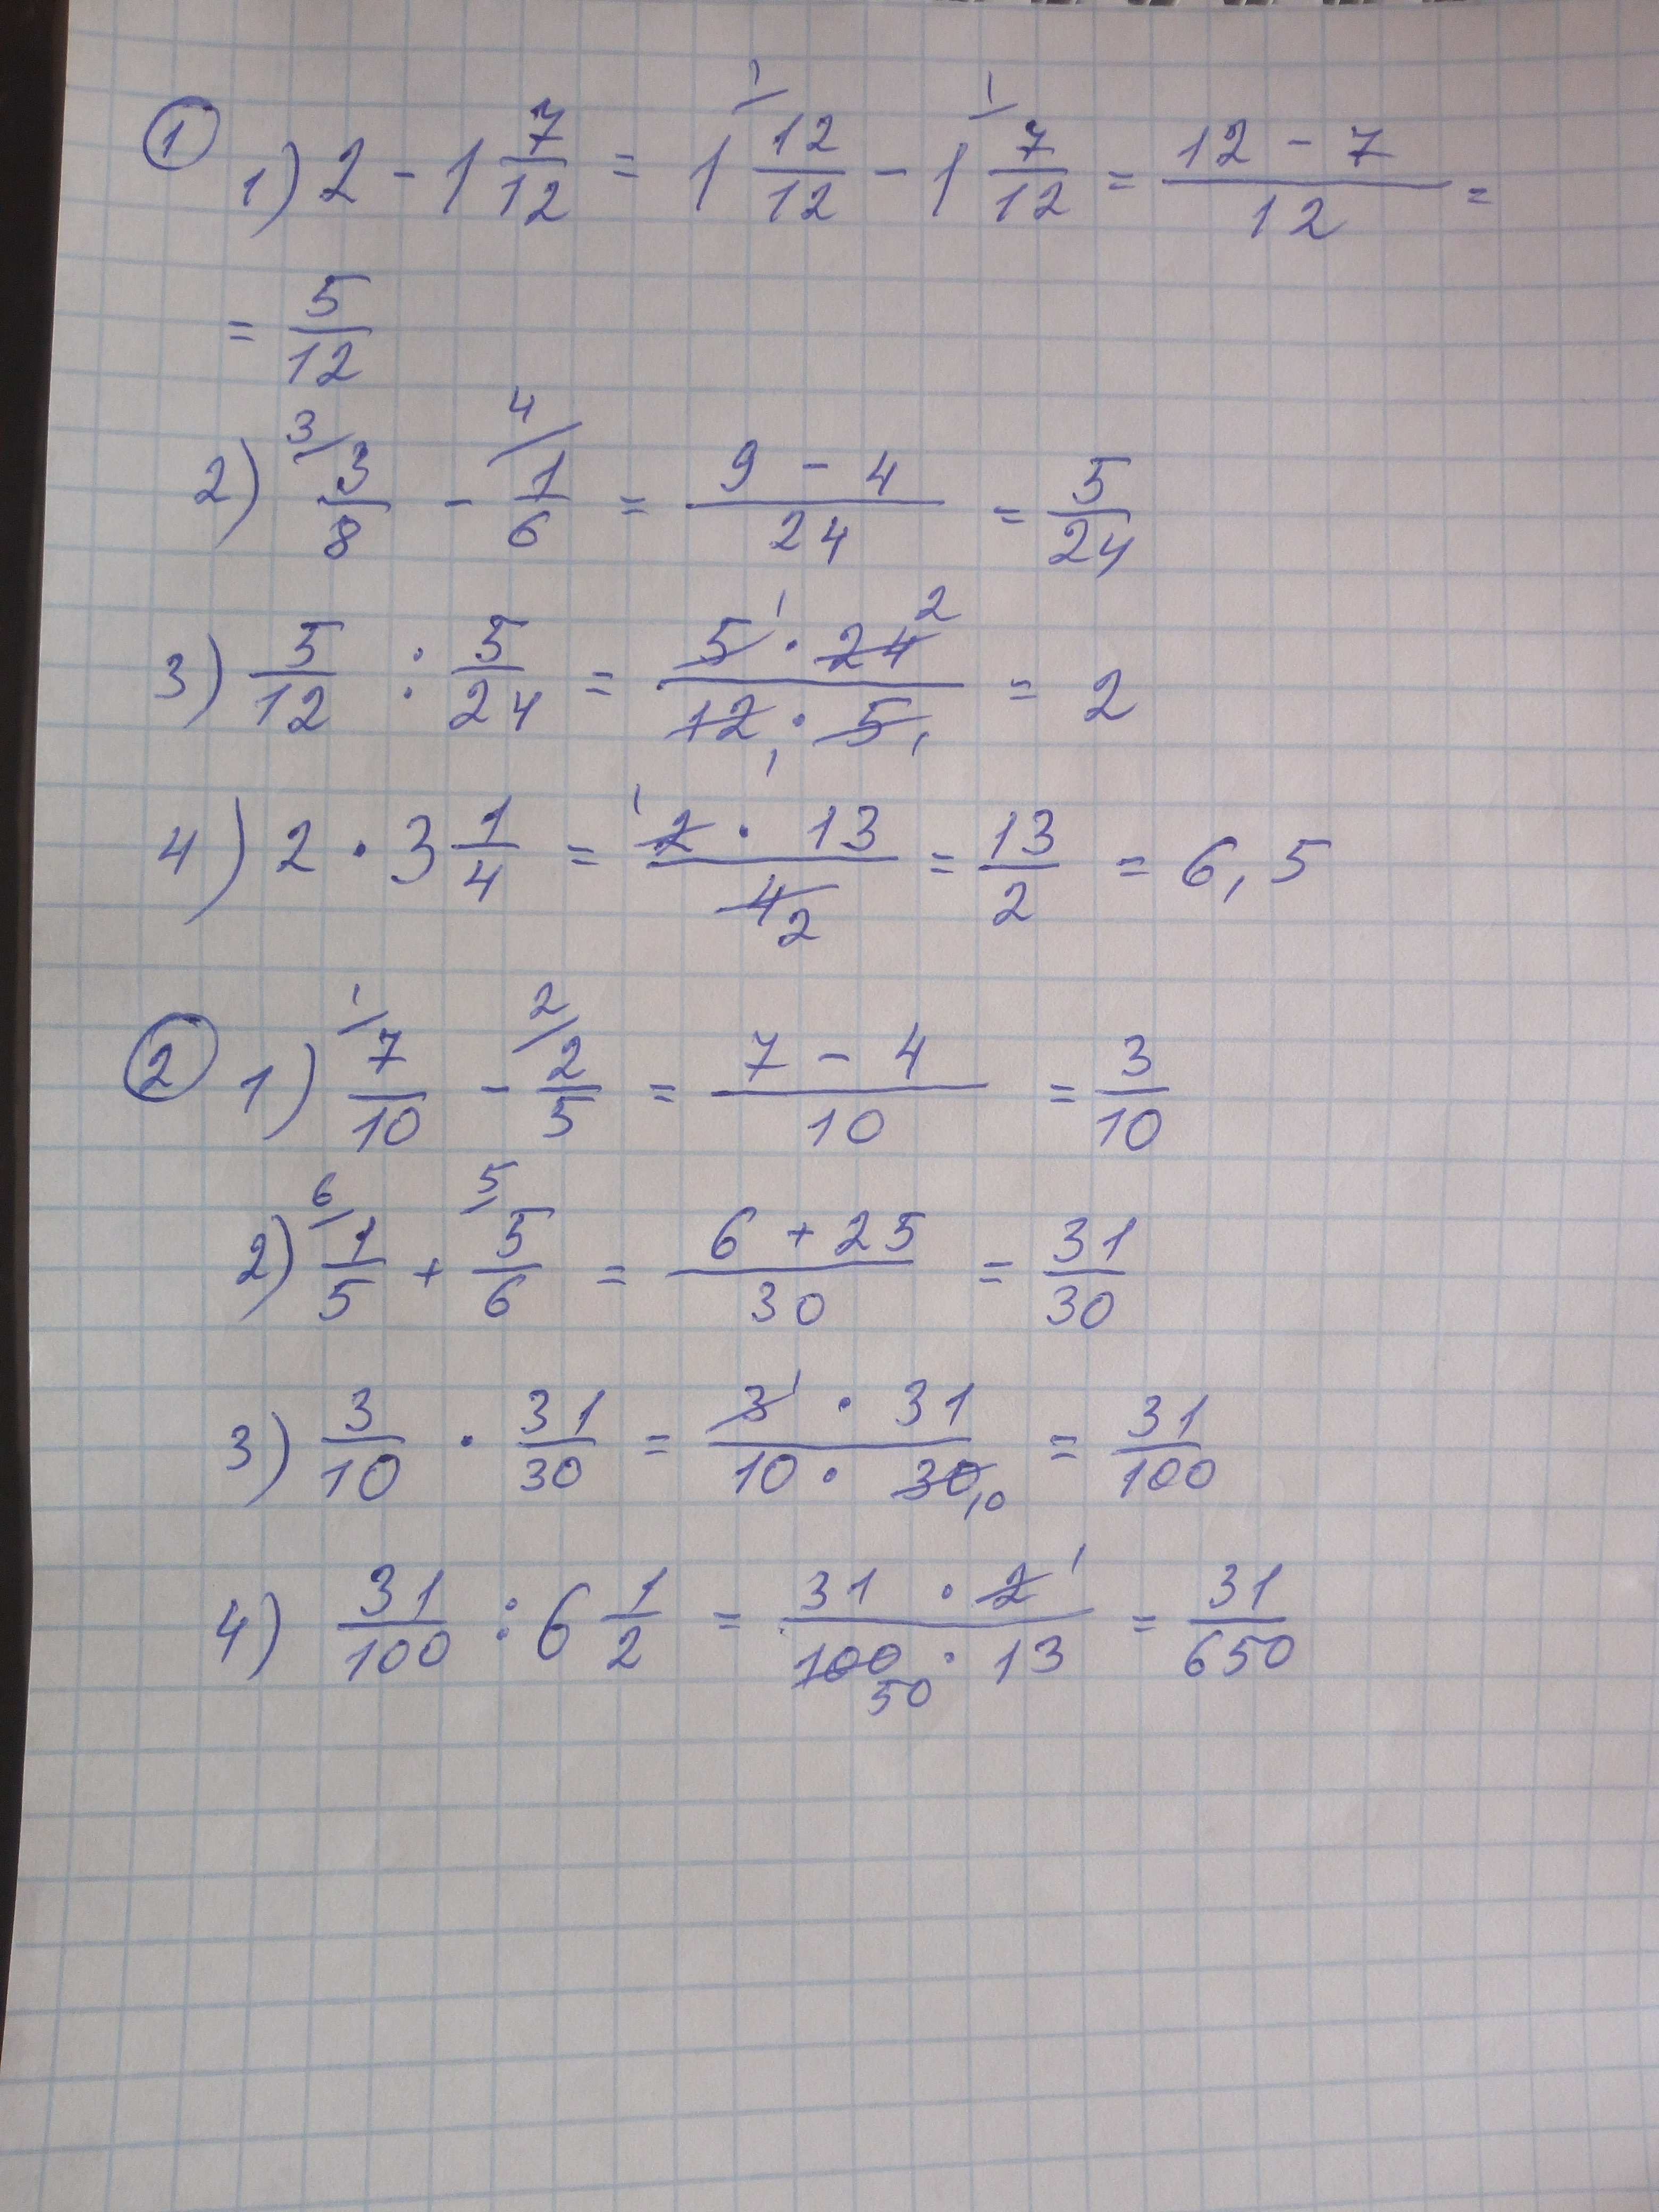 ① 1) 2 - 1 7/12 = 1 12/12 - 1 7/12 = (12 - 7)/12 =
= 5/12
2) 3/8 - 1/6 = (9 - 4)/24 = 5/24
3) 5/12 : 5/24 = (5 · 24)/(12 · 5) = 2
4) 2 · 3 1/4 = (2 · 13)/4 = 13/2 = 6,5
② 1) 7/10 - 2/5 = (7 - 4)/10 = 3/10
2) 1/5 + 5/6 = (6 + 25)/30 = 31/30
3) 3/10 · 31/30 = (3 · 31)/(10 · 30) = 31/100
4) 31/100 : 6 1/2 = (31 · 2)/(100 · 13) = 31/650